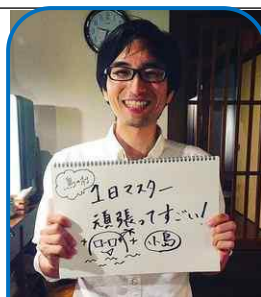 1日マスター
頑張ってすごい!
小島